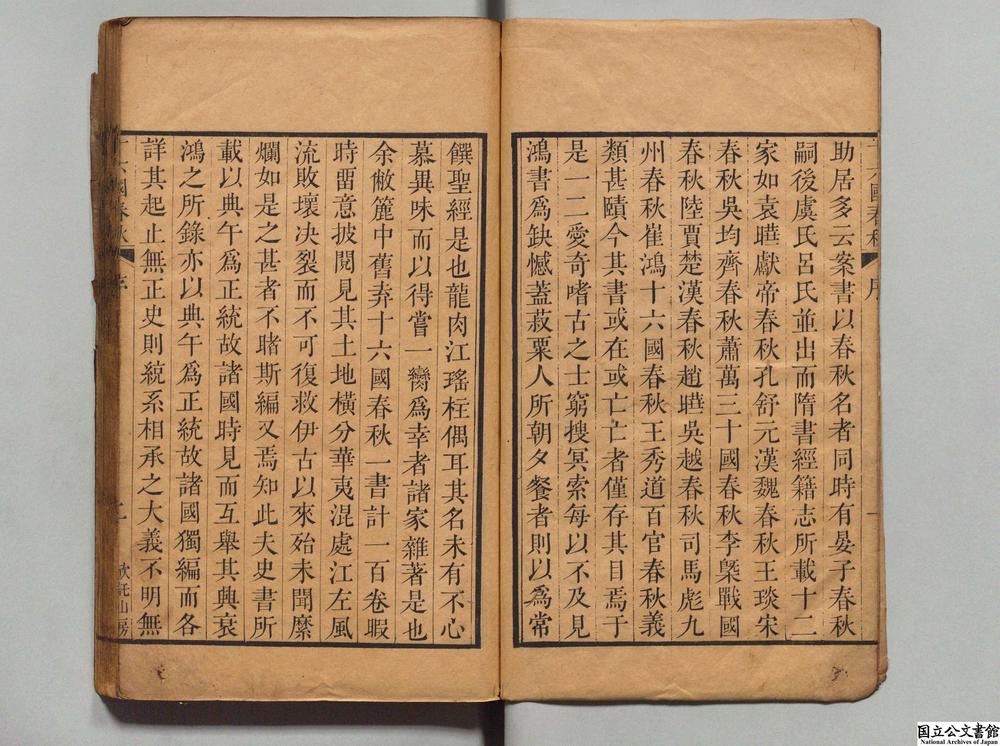 助居多云案書以春秋名者同時有晏子春秋
嗣後虞氏呂氏並出而隋書經籍志所載十二
家如袁曄獻帝春秋孔舒元漢魏春秋王琰宋
春秋吳均齊春秋蕭萬三十國春秋李槩戰國
春秋陸賈楚漢春秋趙曄吳越春秋司馬彪九
州春秋崔鴻十六國春秋王秀道百官春秋義
類甚賾今其書或在或亡亡者僅存其目焉于
是一二愛奇嗜古之士窮搜冥索每以不及見
鴻書爲缺憾蓋菽粟人所朝夕餐者則以爲常
饌聖經是也龍肉江瑤柱偶耳其名未有不心
慕異味而以得嘗一臠爲幸者諸家雜著是也
余敝簏中舊弆十六國春秋一書計一百卷暇
時畱意披閱見其土地橫分華夷混處江左風
流敗壞决裂而不可復救伊古以來殆未聞糜
爛如是之甚者不睹斯編又焉知此夫史書所
載以典午爲正統故諸國時見而互舉其興衰
鴻之所錄亦以典午爲正統故諸國獨編而各
詳其起止無正史則統系相承之大義不明無
十六國春秋
序
二
欣託山房
國立公文書館
National Archives of Japan